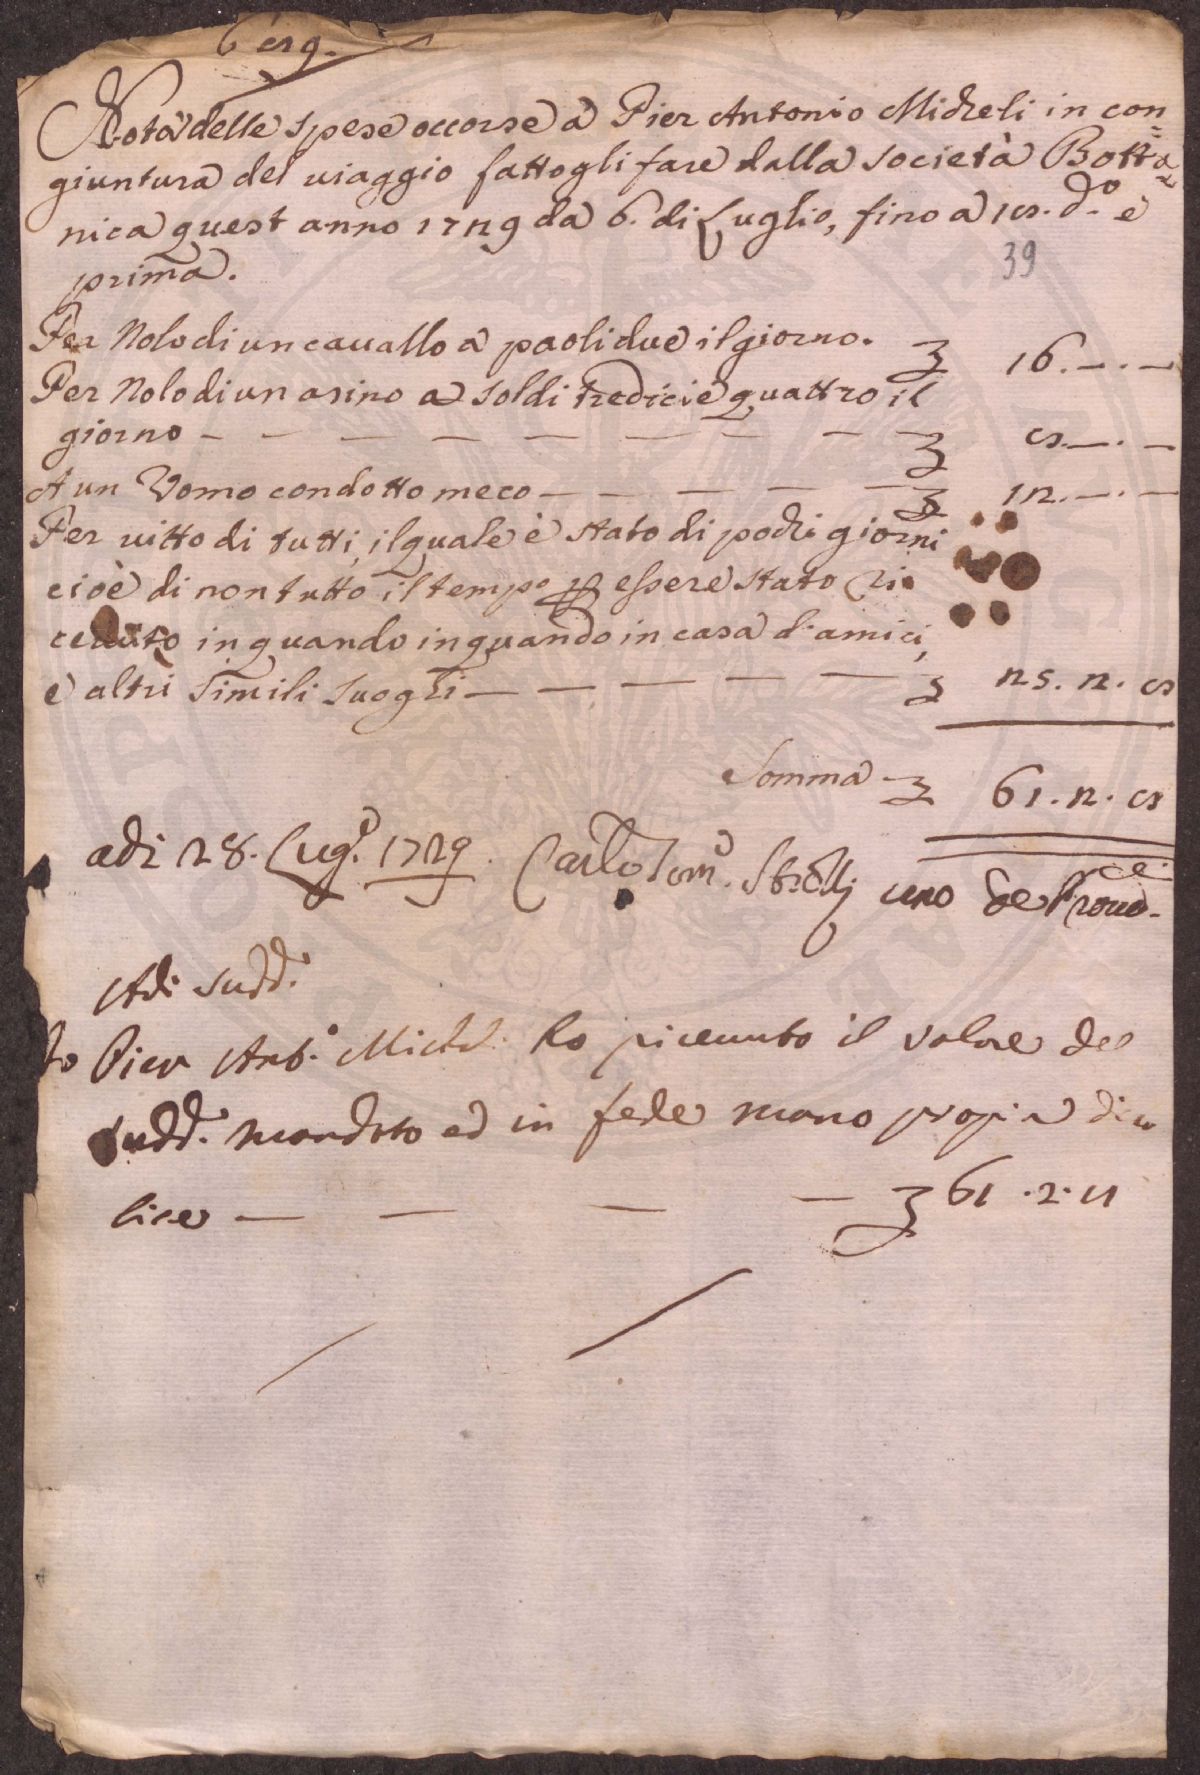 Nota delle spese occorse à Pier Antonio Micheli in con=
giuntura del viaggio fattogli fare dalla Società Botta=
nica quest anno 1729 da 6. di Luglio, fino a 18. d.º e
prima.
39
Per Nolo di un cavallo a paoli due il giorno. £ 16. — . —
Per Nolo di un asino a soldi tredici e quattro il
giorno — — — — — — — — £ 8. — . —
A un Uomo condotto meco — — — — — £ 12. — . —
Per vitto di tutti, il quale è stato di pochi giorni
cioè di non tutto il tempo p essere stato Ri=
ceuuto in quando in quando in casa d'amici,
e altri simili luoghi — — — — — £ 25. 2. 8
Somma — £ 61. 2. 8
adi 28. Lug.º 1729 Carlo Tom.º Strozzi uno de Proved.
Adi sudd.º
Io Pier Ant.º Michel. ho riceuuto il valore del
sudd.º mandato ed in fede mano propria dico
lire — — — — £ 61 . 2 . 8